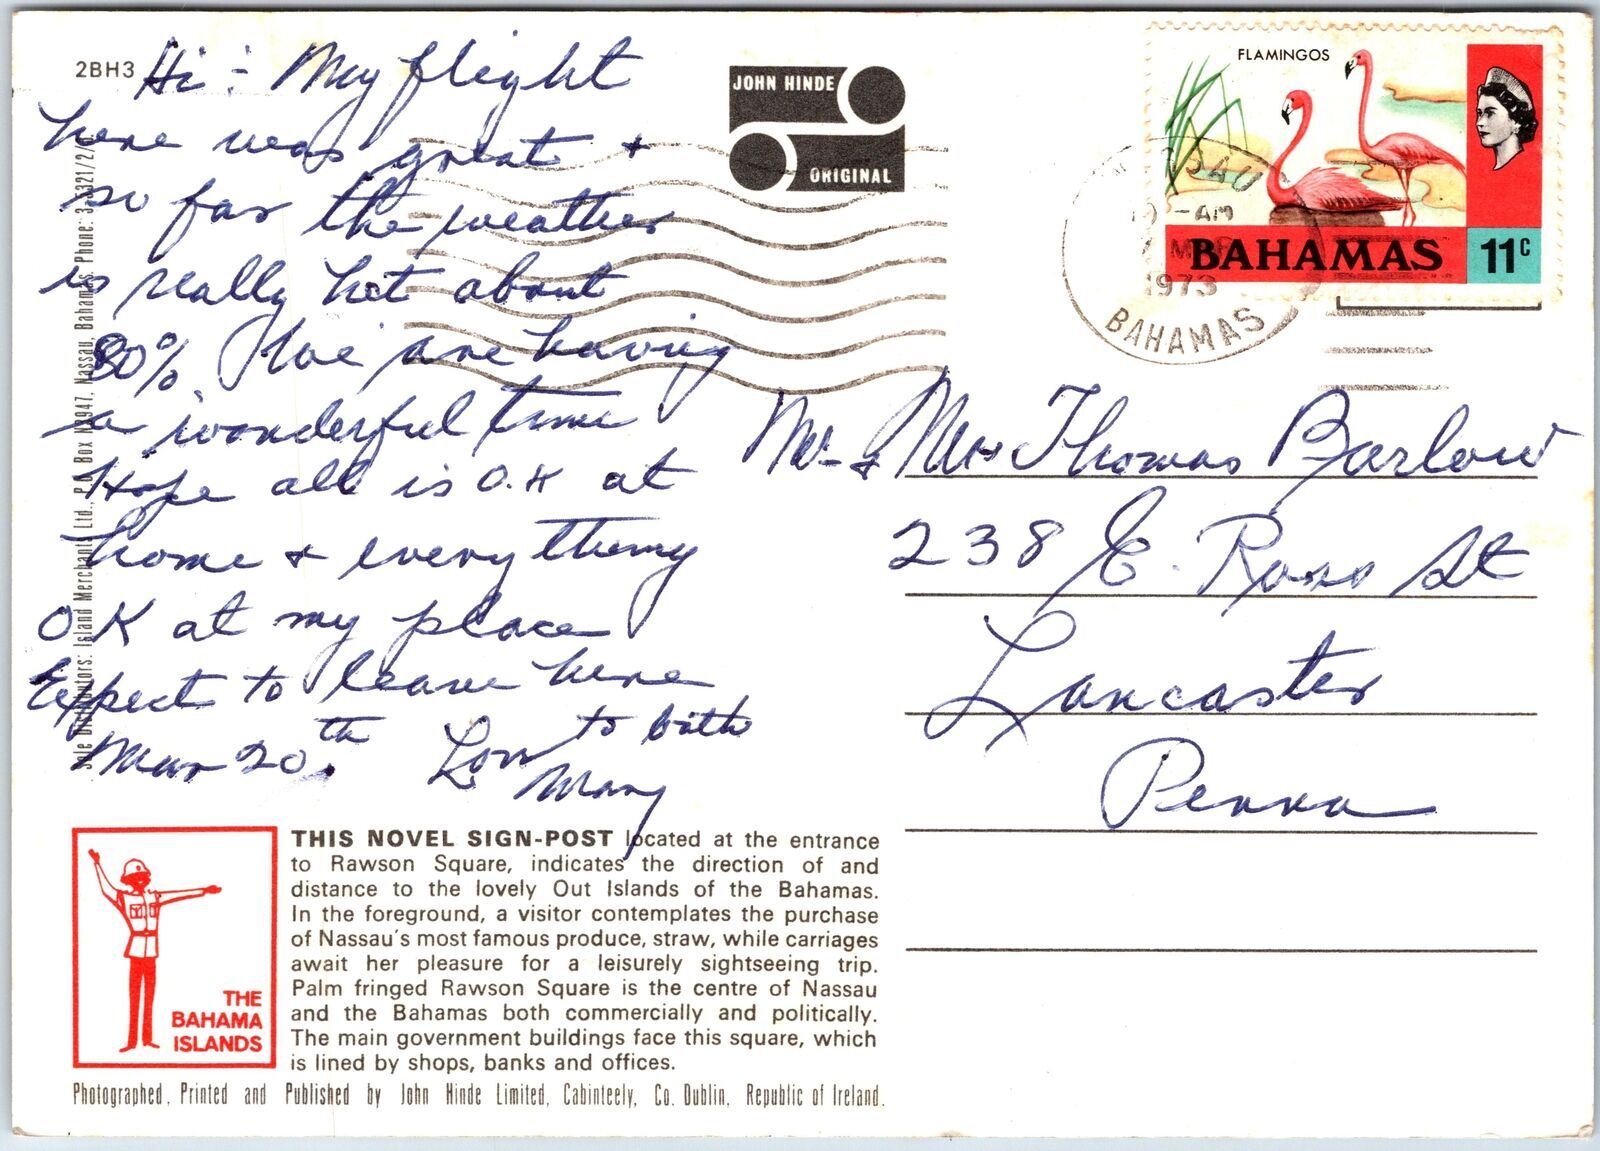 2BH3
Hi: My flight
here was great +
so far the weather
is really hot about
80% We are having
a wonderful time
Hope all is O.K at
home + everything
O K at my place
Expect to leave here
Mar 20th. Love to both
Mary
Sole Distributors: Island Merchant Ltd., P.O. Box N3947, Nassau, Bahamas. Phone:
JOHN HINDE
ORIGINAL
FLAMINGOS
BAHAMAS 11c
NASSAU
AM
1973
BAHAMAS
Mr. & Mrs Thomas Barlow
238 E. Ross St
Lancaster
Penna
THE
BAHAMA
ISLANDS
THIS NOVEL SIGN-POST located at the entrance
to Rawson Square, indicates the direction of and
distance to the lovely Out Islands of the Bahamas.
In the foreground, a visitor contemplates the purchase
of Nassau's most famous produce, straw, while carriages
await her pleasure for a leisurely sightseeing trip.
Palm fringed Rawson Square is the centre of Nassau
and the Bahamas both commercially and politically.
The main government buildings face this square, which
is lined by shops, banks and offices.
Photographed, Printed and Published by John Hinde Limited, Cabinteely, Co. Dublin, Republic of Ireland.